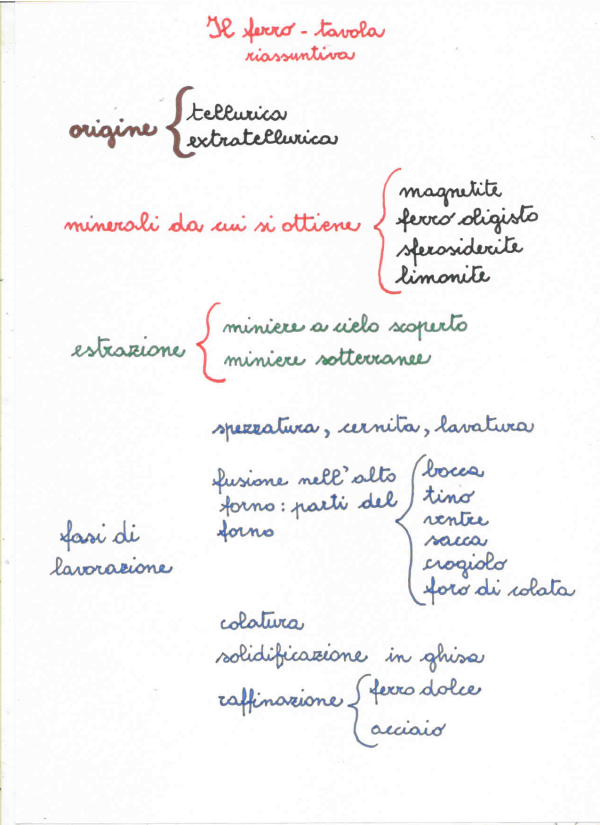 Il ferro - tavola
riassuntiva
origine
tellurica
extratellurica
minerali da cui si ottiene
magnetite
ferro oligisto
sferosiderite
limonite
estrazione
miniere a cielo scoperto
miniere sotterranee
fasi di
lavorazione
spezzatura, cernita, lavatura
fusione nell'alto
forno: parti del
forno
bocca
tino
ventre
sacca
crogiolo
foro di colata
colatura
solidificazione in ghisa
raffinazione
ferro dolce
acciaio